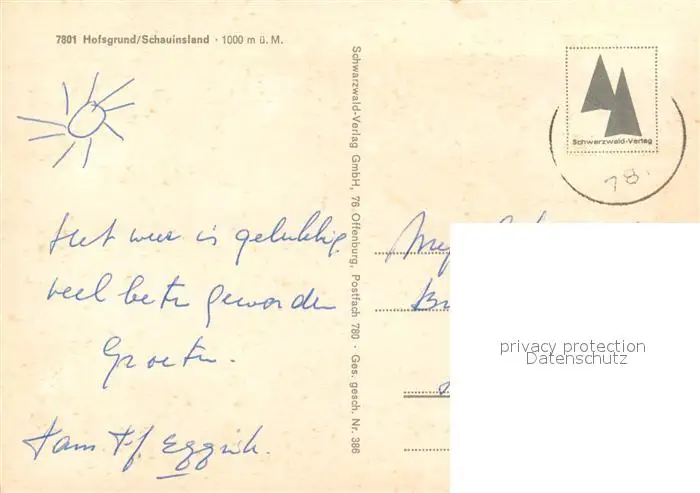 7801 Hofsgrund/Schauinsland · 1000 m ü. M.
Schwarzwald-Verlag
78.
Het weer is gelukkig
veel beter geworden
Groeten.
Fam
Schwarzwald-Verlag GmbH, 76 Offenburg, Postfach 780 · Ges. gesch. Nr. 386
privacy protection
Datenschutz